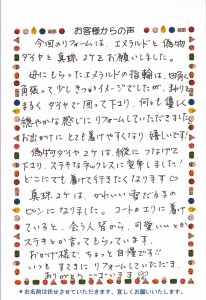 お客様からの声
今回のリフォームは、エメラルドと偽物
ダイヤと真珠2ケをお願いしました。
母にもらったエメラルドの指輪は、四角く
角張って、少しきついイメージでしたが、まわりを
まるく ダイヤで囲って下さり、何とも優しく
穏やかな感じにリフォームしていただきました。
お出かけに とても着けやすくなり 嬉しいです!
偽物ダイヤ2ケは、縦につなげて
下さり、ステキなネックレスに変身しました!
どこにでも着けて行きたくなります♡
真珠2ケは、かわいい雪だるまの
ピンになりました。コートのエリに着け
ていると、会う人皆から、可愛いいとか
ステキとか言ってもらっています。
おかげ様で、ちょっと自慢です!!
いつも すてきに リフォームしていただき、
ありがとうございます♡♡
*お名前は伏せさせていただきます、宜しくお願いいたします。